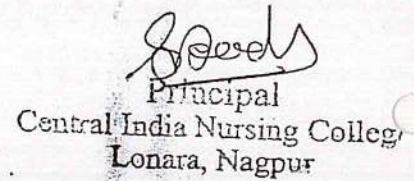 Principal
Central India Nursing Colleg
Lonara, Nagpur